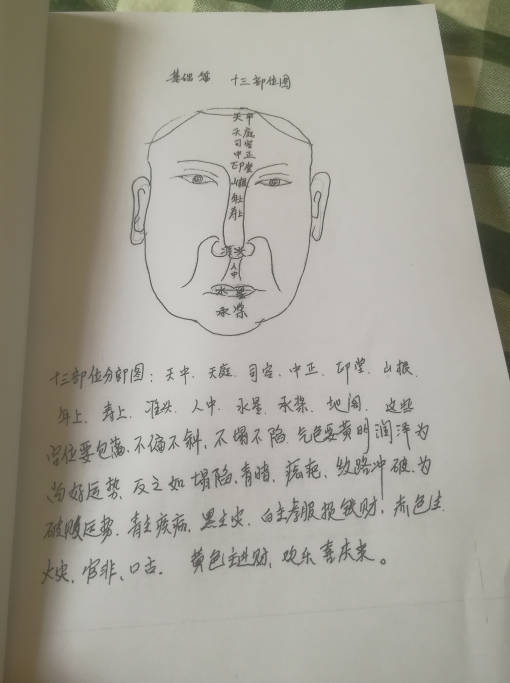 基础篇 十三部位图
天中
天庭
司空
中正
印堂
山根
年上
寿上
准头
人中
水星
承浆
十三部位分部图：天中、天庭、司空、中正、印堂、山根、
年上、寿上、准头、人中、水星、承浆、地阁、这些
宫位要饱满、不偏不斜、不塌不陷、气色要黄明润泽为
尚好运势、反之如塌陷、青暗、疤耙、纹路冲破、为
破败运势、青主疾病、黑主灾、白主孝服损钱财、赤色主
火灾、官非、口舌、黄色主进财、欢乐喜庆来。